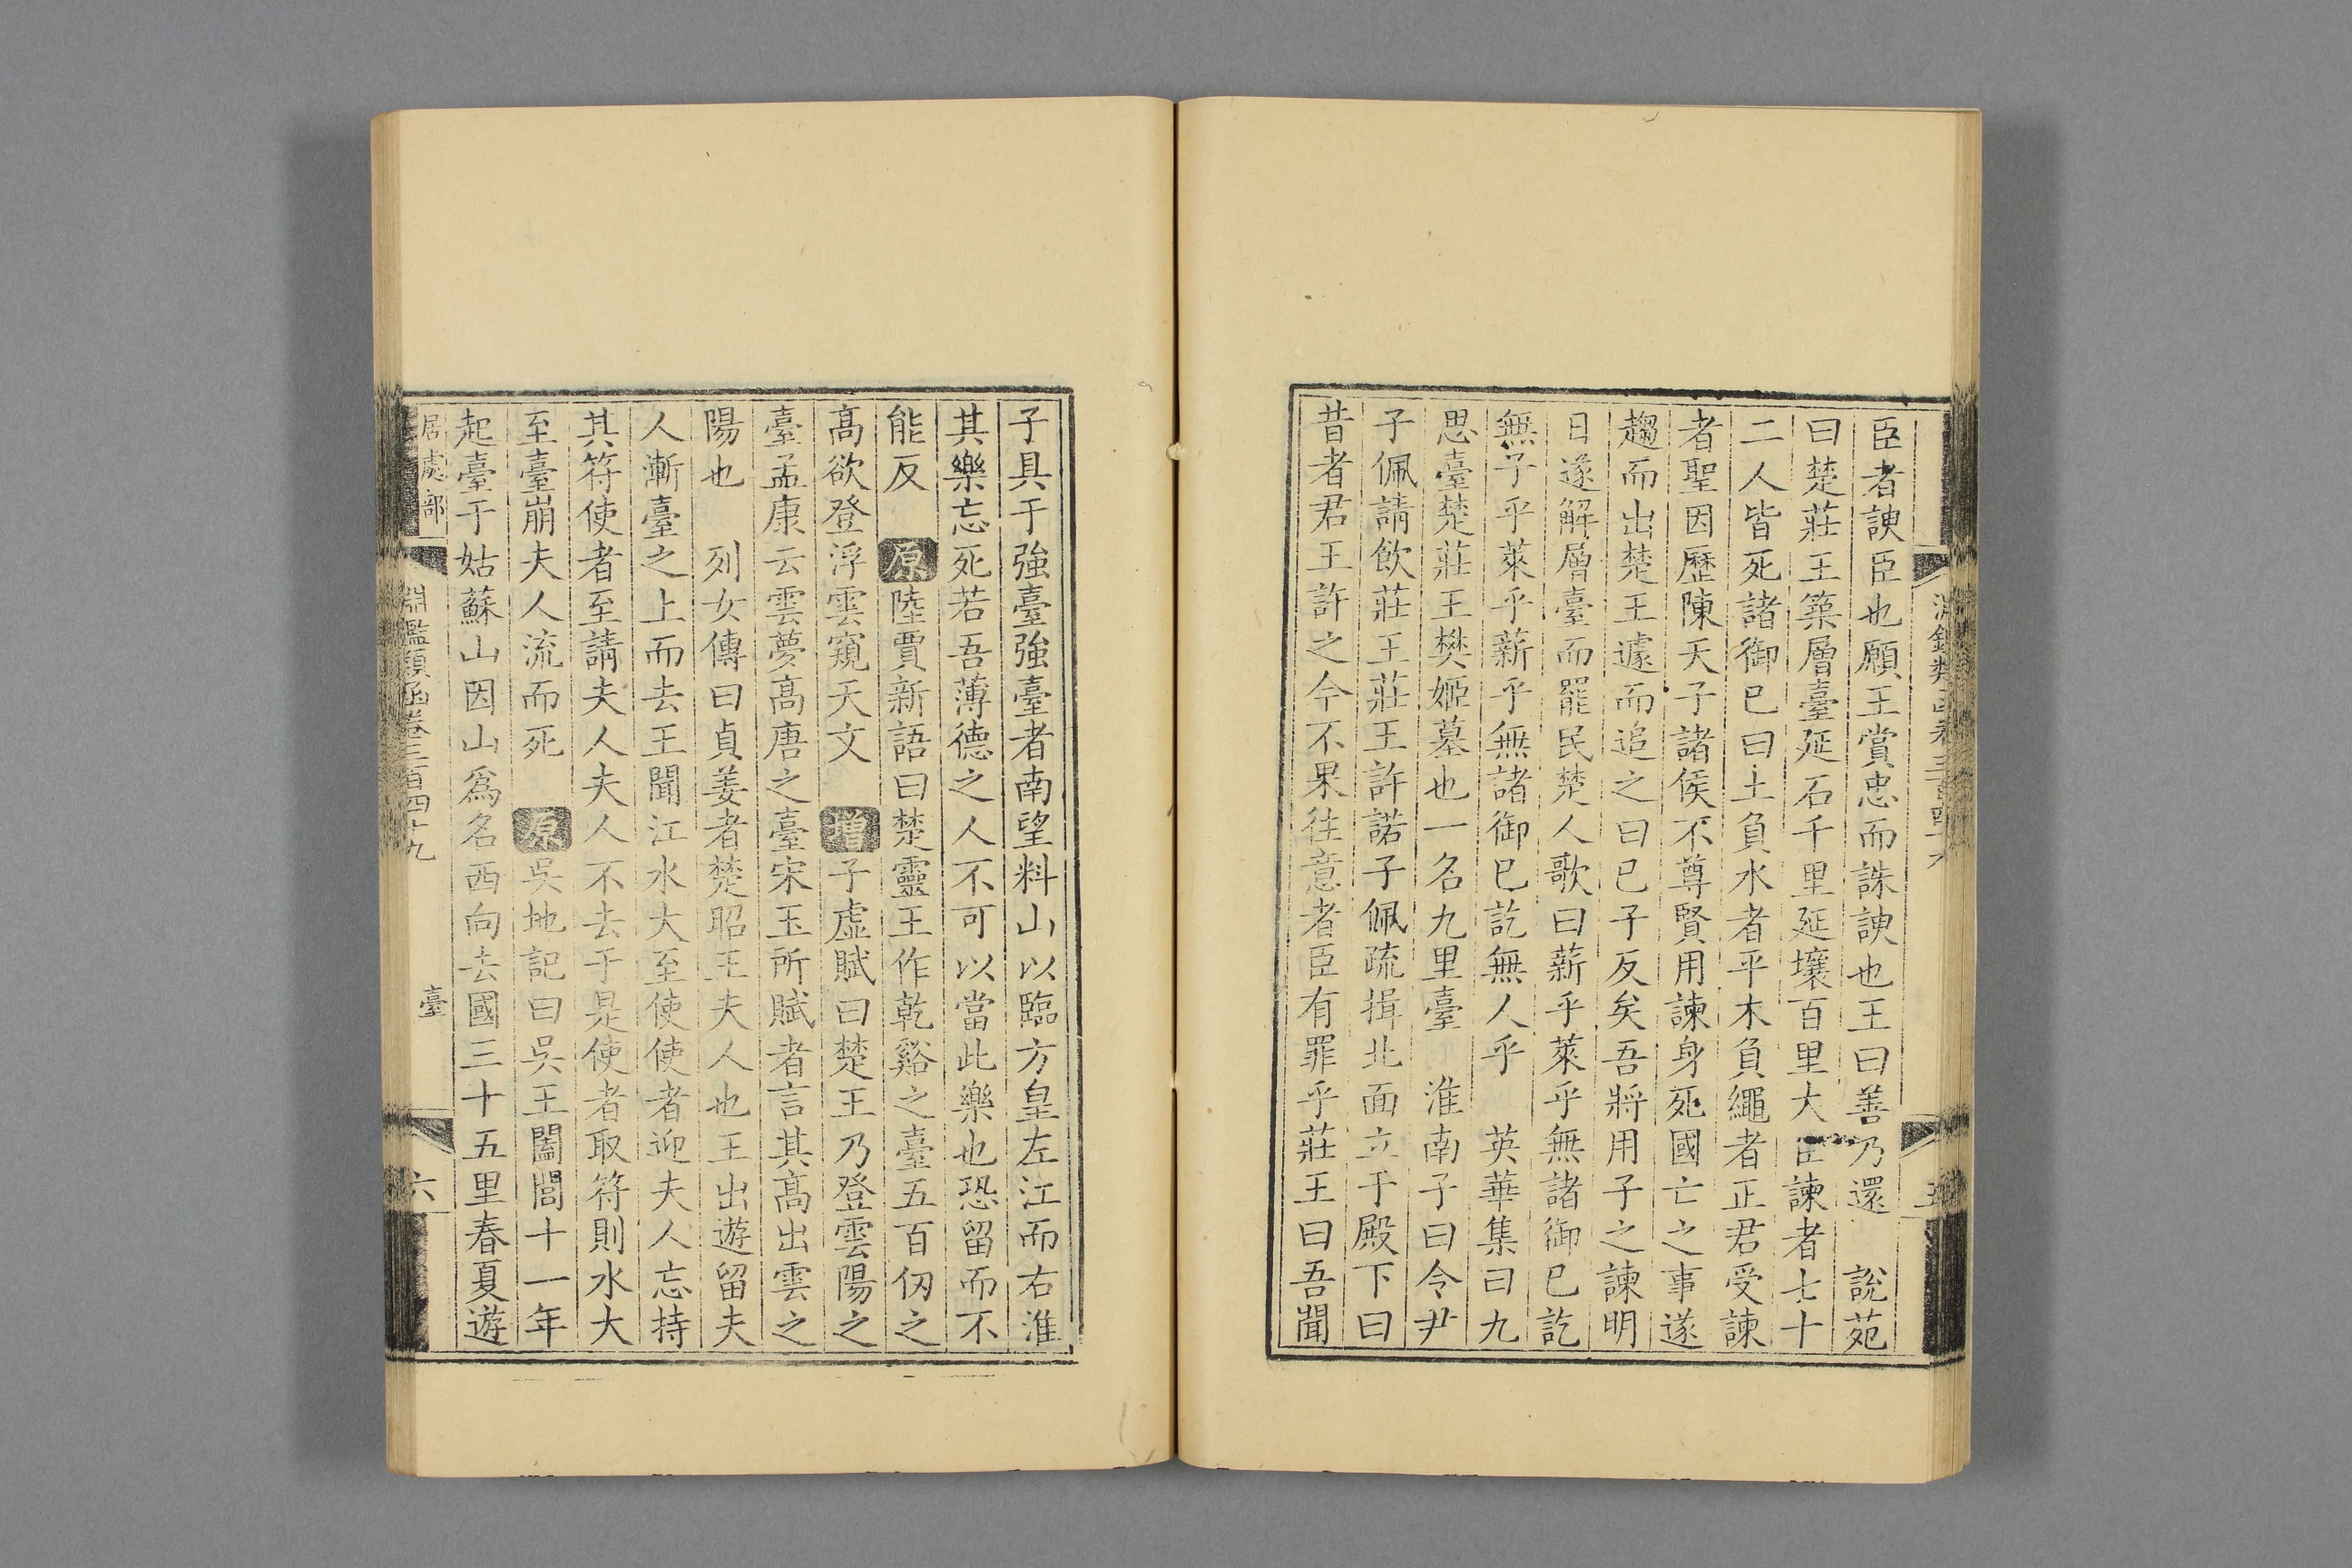 臣者諛臣也願王賞忠而誅諛也王曰善乃還　說苑
曰楚莊王築層臺延石千里延壤百里大臣諫者七十
二人皆死諸御已曰土負水者平木負繩者正君受諫
者聖因歷陳天子諸侯不尊賢用諫身死國亡之事遂
趨而出楚王遽而追之曰已子反矣吾將用子之諫明
日遂解層臺而罷民楚人歌曰薪乎萊乎無諸御已訖
無子乎萊乎薪乎無諸御已訖無人乎　英華集曰九
思臺楚莊王樊姬墓也一名九里臺　淮南子曰令尹
子佩請飲莊王莊王許諾子佩疏揖北面立于殿下曰
昔者君王許之今不果往意者臣有罪乎莊王曰吾聞
子具于強臺強臺者南望料山以臨方皇左江而右淮
其樂忘死若吾薄德之人不可以當此樂也恐留而不
能反　原陸賈新語曰楚靈王作乾谿之臺五百仞之
高欲登浮雲窺天文　增子虛賦曰楚王乃登雲陽之
臺孟康云雲夢高唐之臺宋玉所賦者言其高出雲之
陽也　列女傳曰貞姜者楚昭王夫人也王出遊留夫
人漸臺之上而去王聞江水大至使使者迎夫人忘持
其符使者至請夫人夫人不去于是使者取符則水大
至臺崩夫人流而死　原吳地記曰吳王闔閭十一年
起臺于姑蘇山因山爲名西向去國三十五里春夏遊
居處部　淵鑑類函卷三百四十九　臺　六